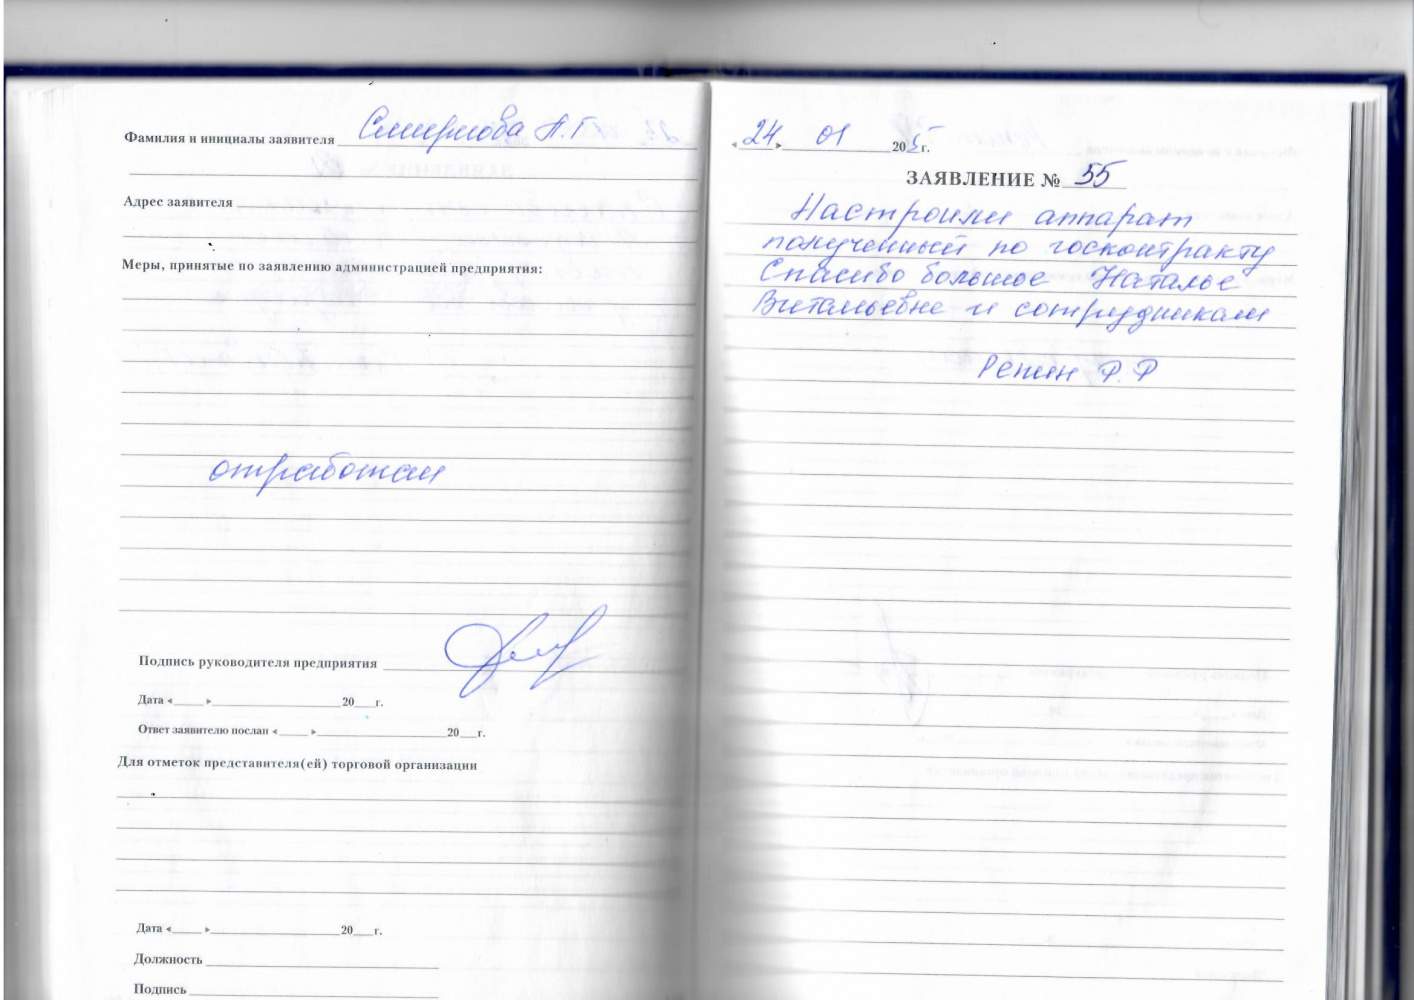 Фамилия и инициалы заявителя Смирнова А.Г
Адрес заявителя
Меры, принятые по заявлению администрацией предприятия:
отработан
Подпись руководителя предприятия
Дата « » 20 г.
Ответ заявителю послан « » 20 г.
Для отметок представителя(ей) торговой организации
Дата « » 20 г.
Должность
Подпись
«24» 01 205г.
ЗАЯВЛЕНИЕ № 55
Настроили аппарат
полученный по госконтракту
Спасибо большое Наталье
Витальевне и сотрудникам
Репин Р.Р